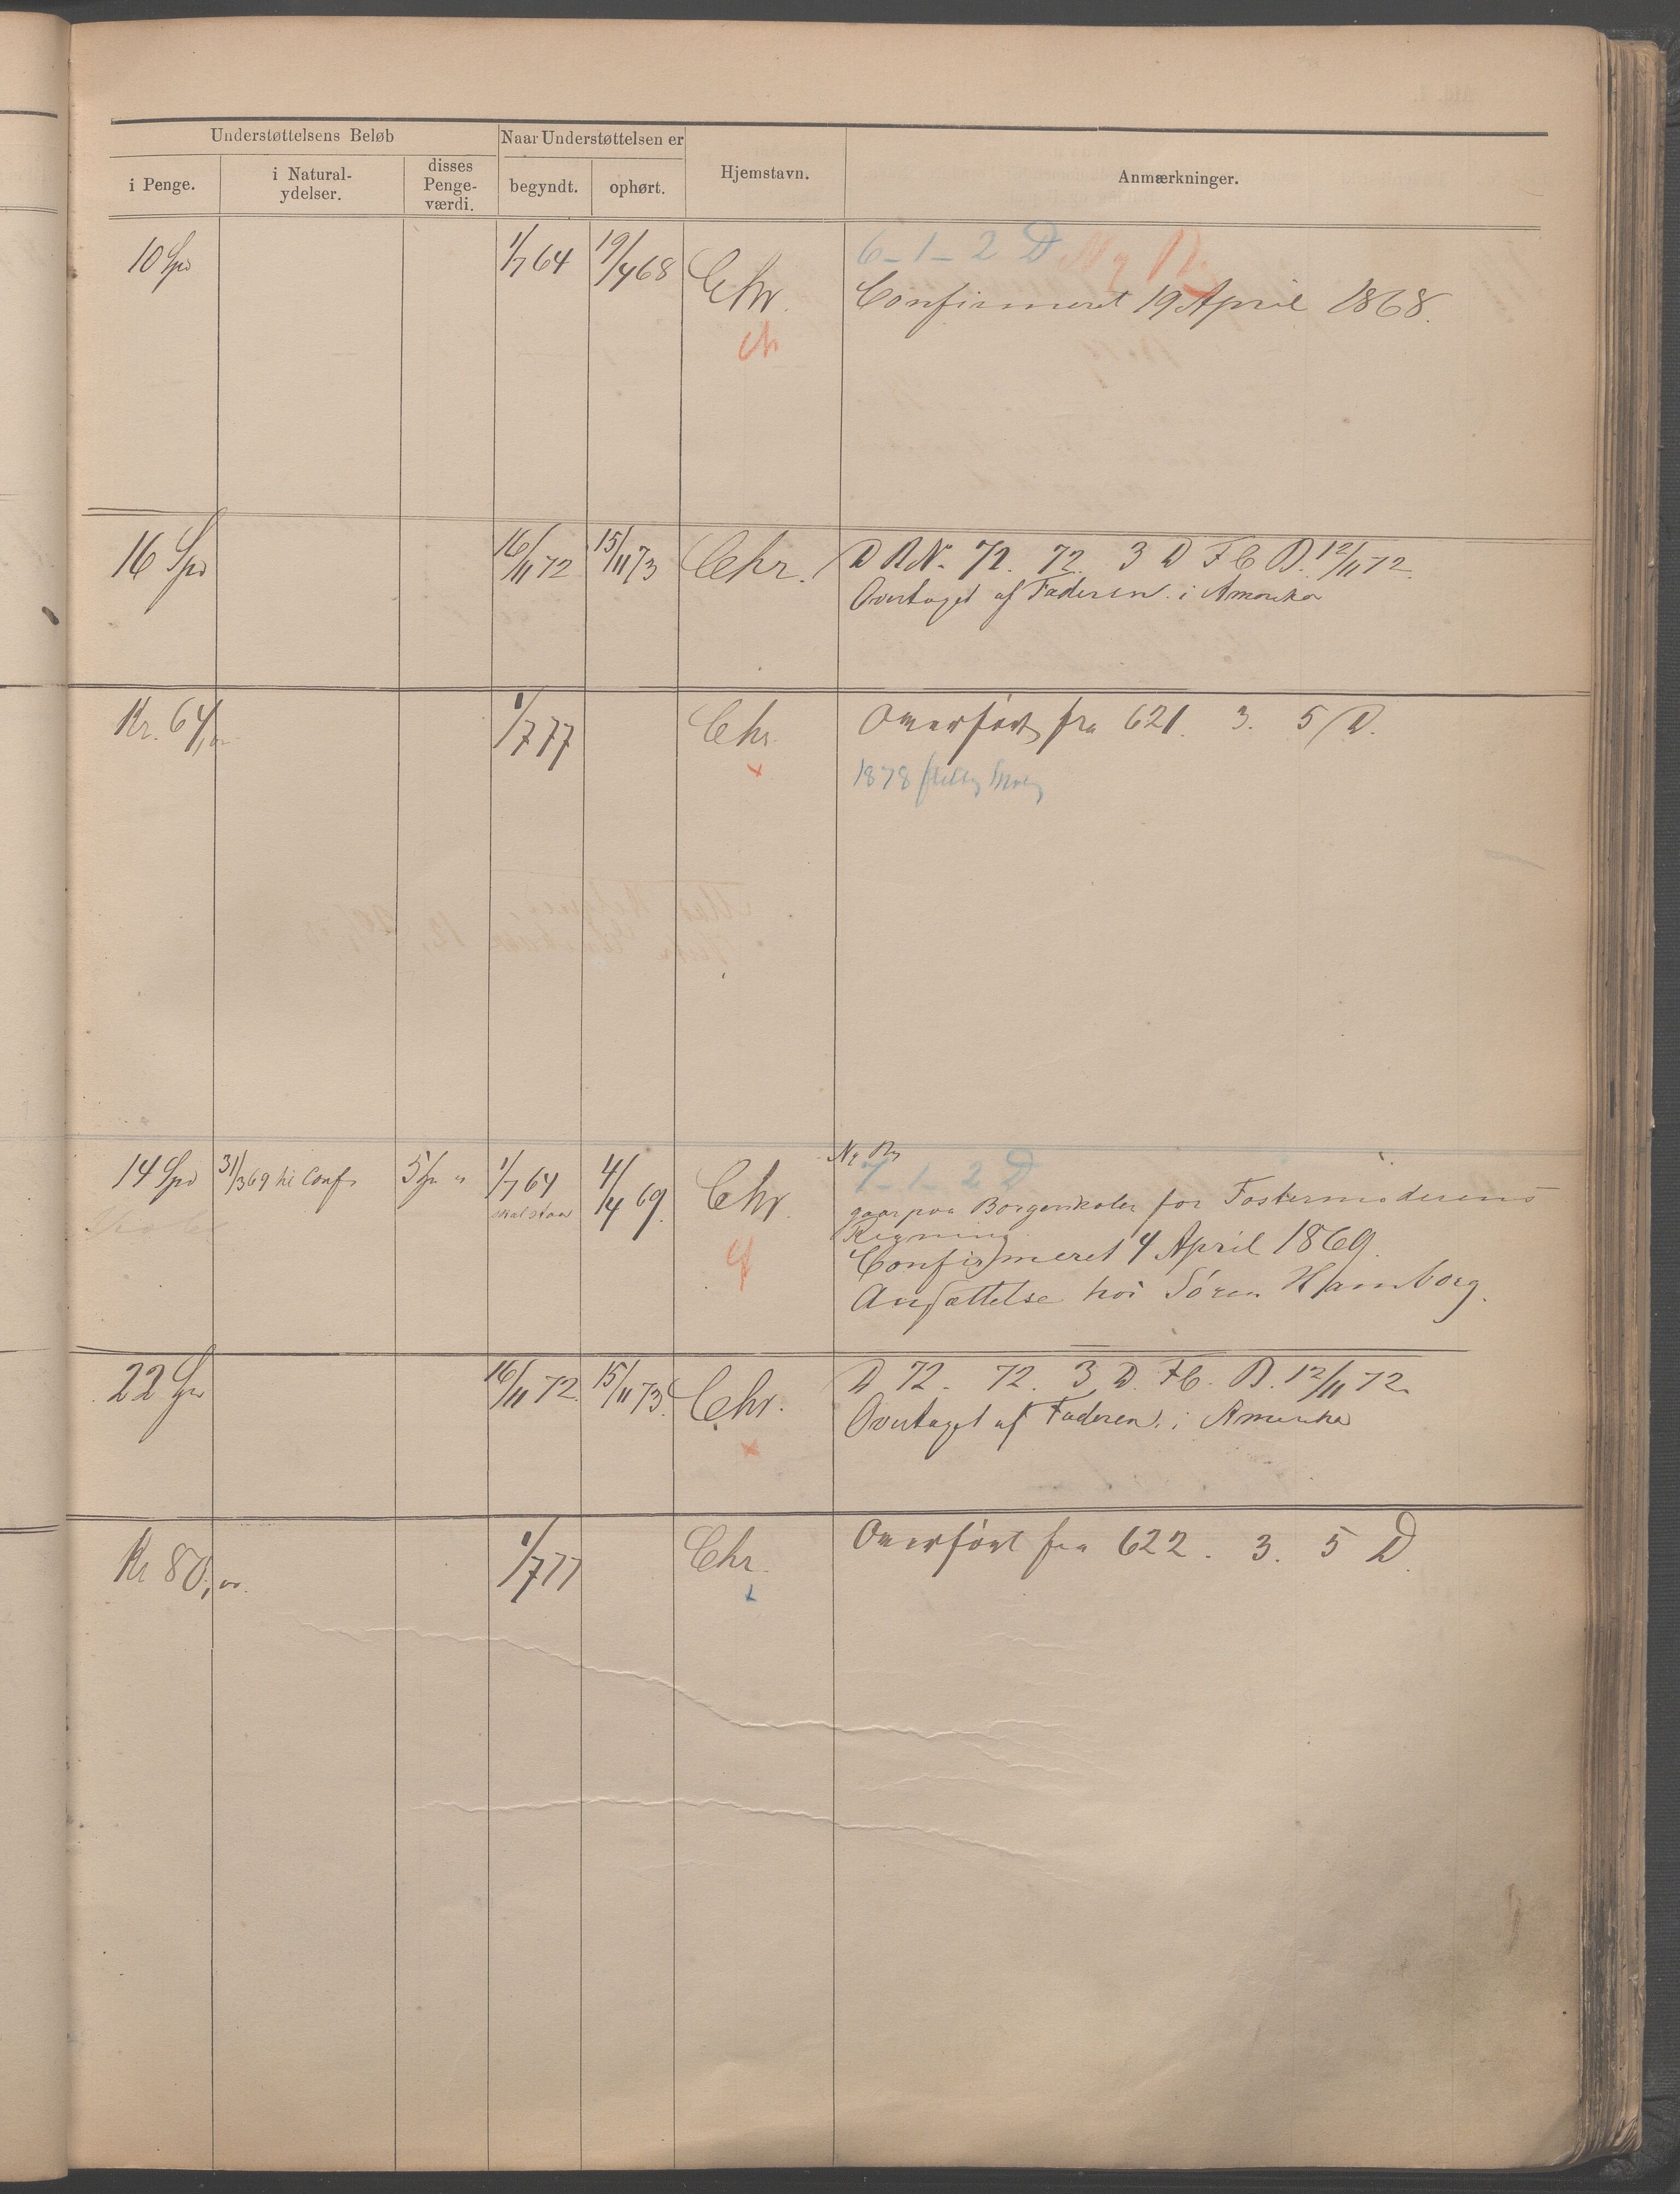 Understøttelsens Beløb
Naar Understøttelsen er
i Penge.
i Natural-
ydelser.
disses
Penge-
værdi.
begyndt.
ophørt.
Hjemstavn.
Anmærkninger.
6 - 1 - 2 D Ny
10 Spd 1/7 64 19/4 68 Chr. Confirmeret 19 April 1868.
16 Spd 16/11 72 15/11 73 Chr. D 72. 72. 3 D F C B. 12/11 72.
Overtaget af Faderen i Amerika
Kr. 64, 1/7 77 Chr Overført fra 621. 3. 5 D.
1878
Ny
7 - 1 - 2 D
14 Spd 31/3 69 til Conf. 5 1/7 64 4/4 69. Chr. gaar paa Borgerskolen for Fostermoderens
skal staa
Regning
Confirmeret 4 April 1869.
Ansættelse hos Sören Hamborg.
22 Spd 16/11 72. 15/11 73. Chr. D 72. 72. 3 D. F C. B. 12/11 72.
Overtaget af Faderen i Amerika
Kr 80, 1/7 77 Chr. Overført fra 622. 3. 5 D.